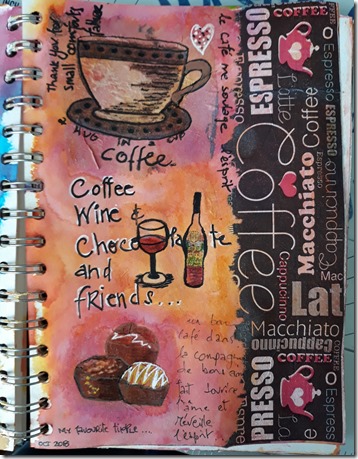 Thank you for
small comforts
like
Le café me soulage
A HUG IN A
coffee..
Coffee
Wine &
Chocolate
and
friends...
un bon
café dans
la compagnie
de bons amis
fait sourire
l'âme et
réveille
l'esprit
MY FAVOURITE TIPPLE...
OCT 2018
COFFEE
ESPRESSO
Latte
Coffee
Macchiato
Coffee
Espresso
Cappuccino
Espresso
Cappuccino
Mac
Lat
Macchiato
Cappuccino
COFFEE
PRESSO
Espresso